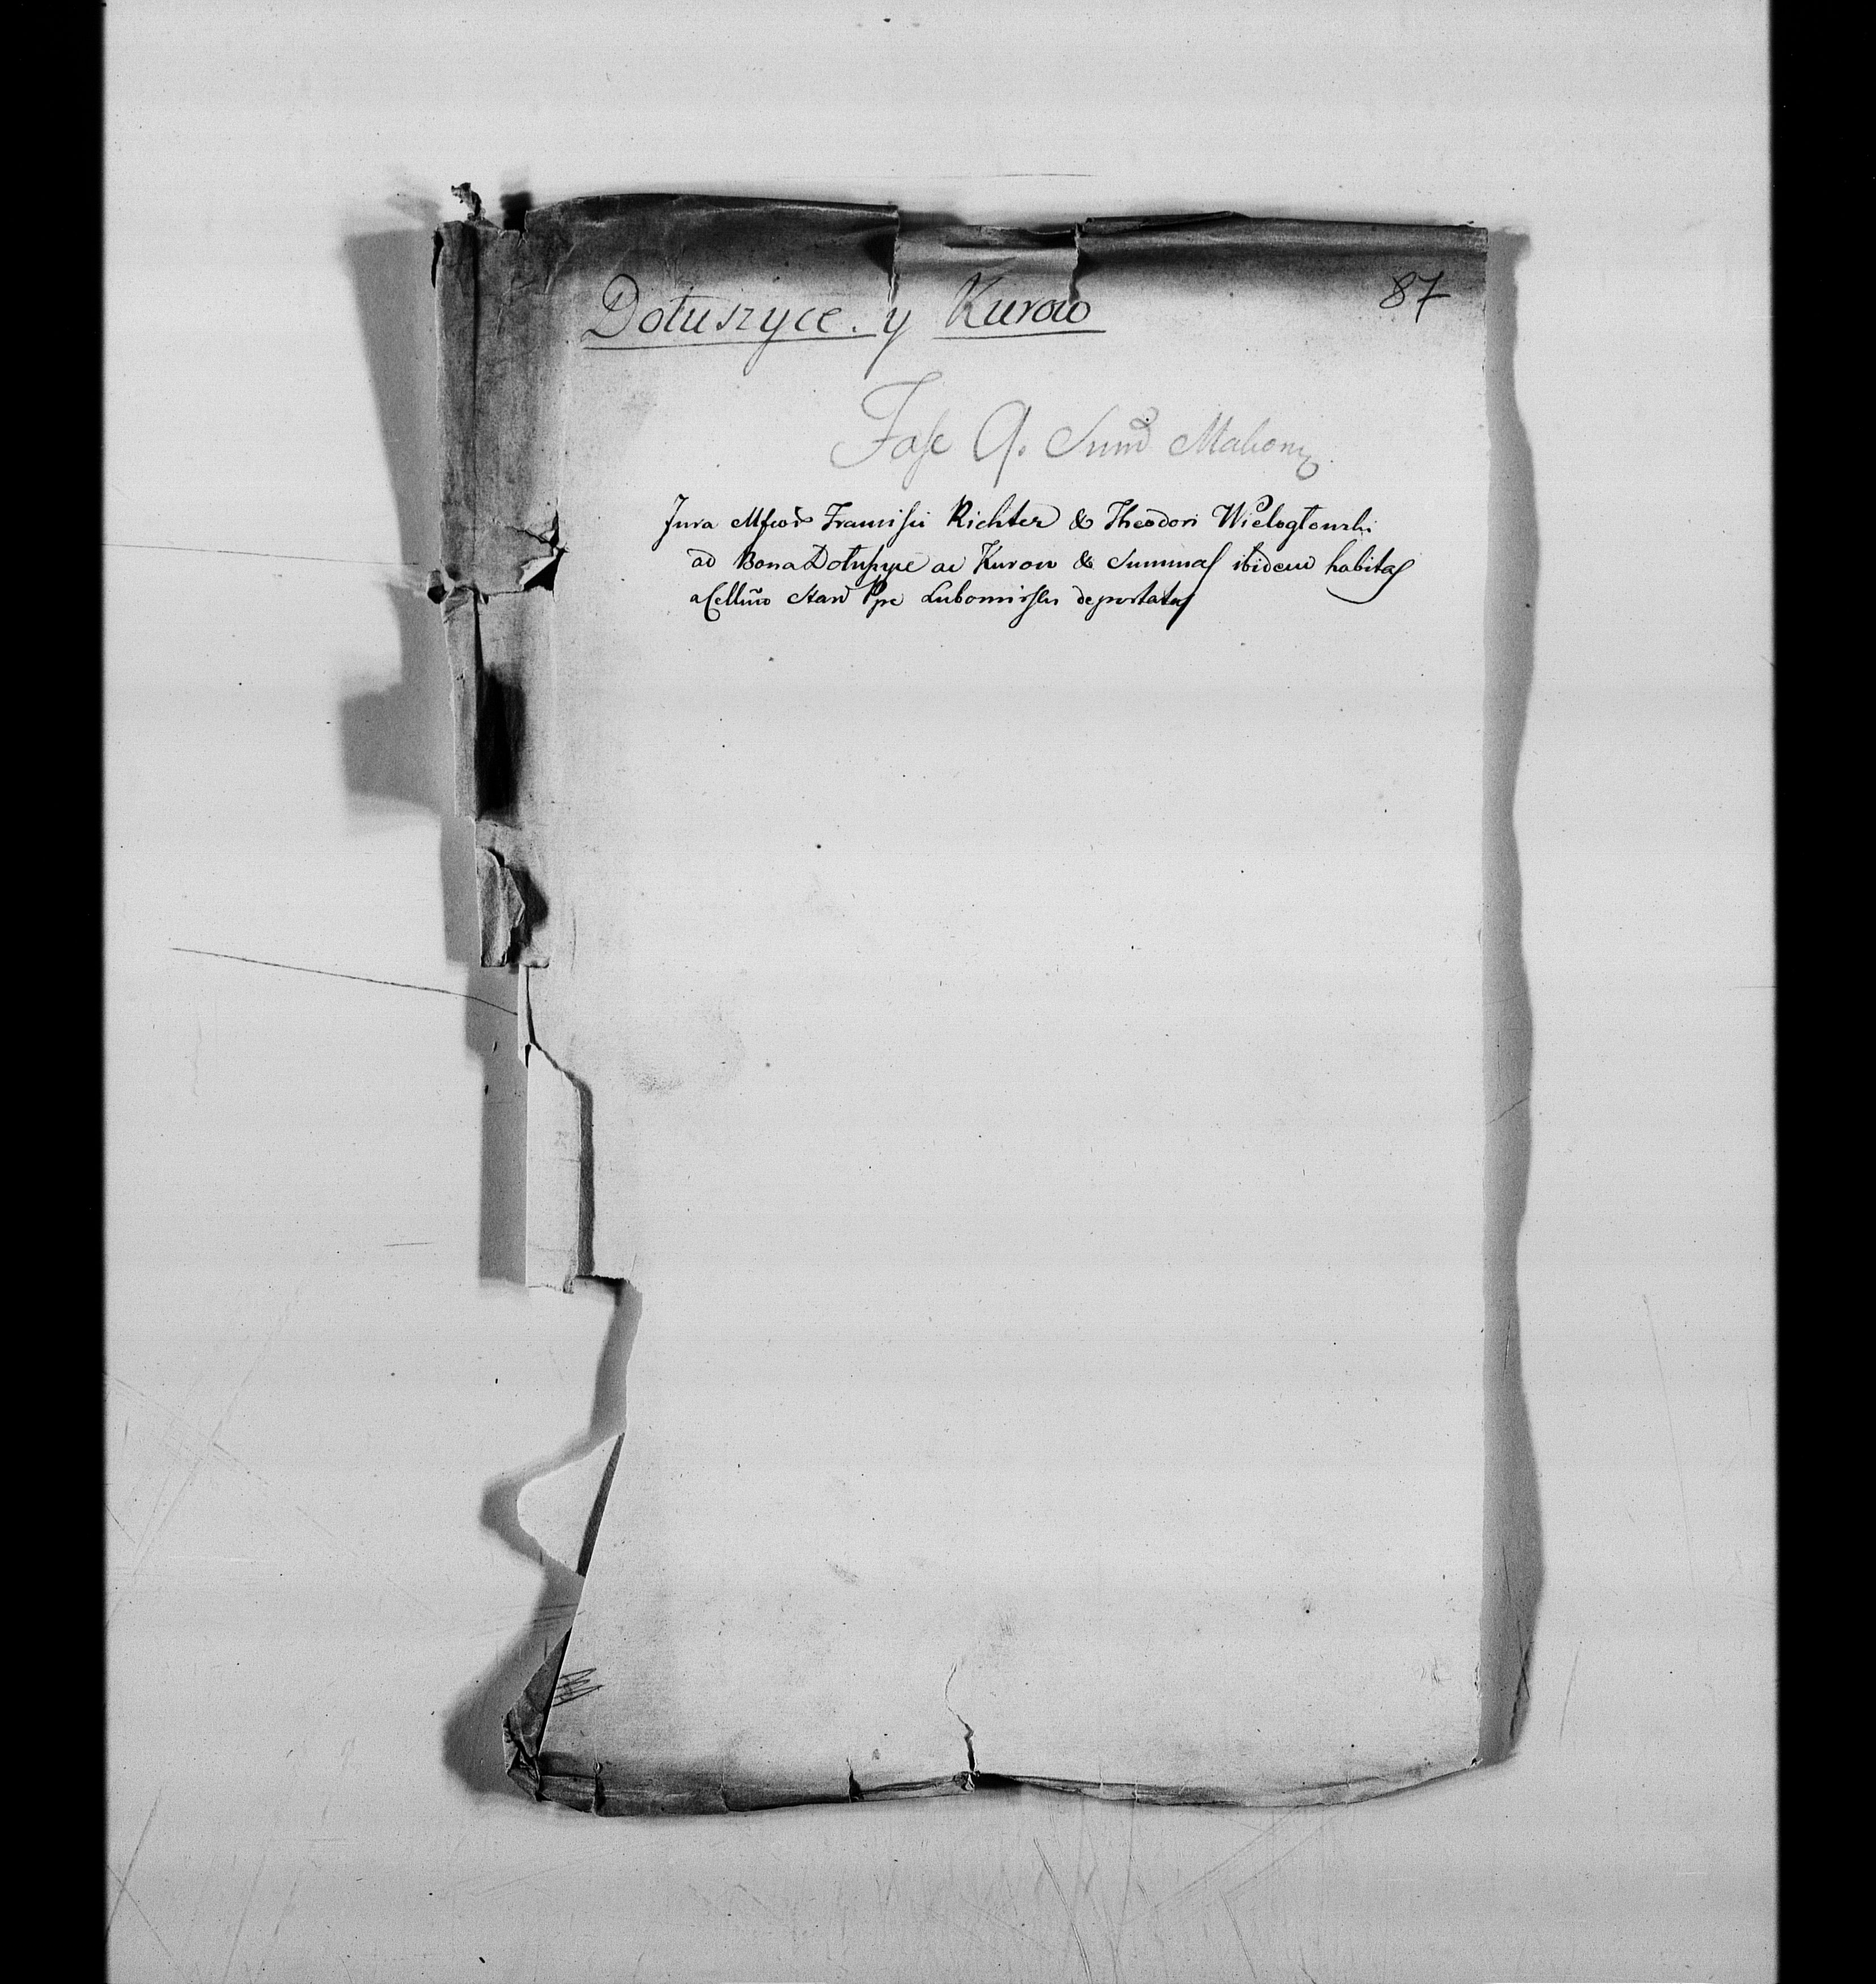 Dołuszyce y Kurow
87
Fasc 9.
Jura Francisci Richter & Theodori Wielogłowski
ad Bona Dołuszyce ac Kurow & Summas ibidem habitas
a Cellmo Lubomirski deportatas